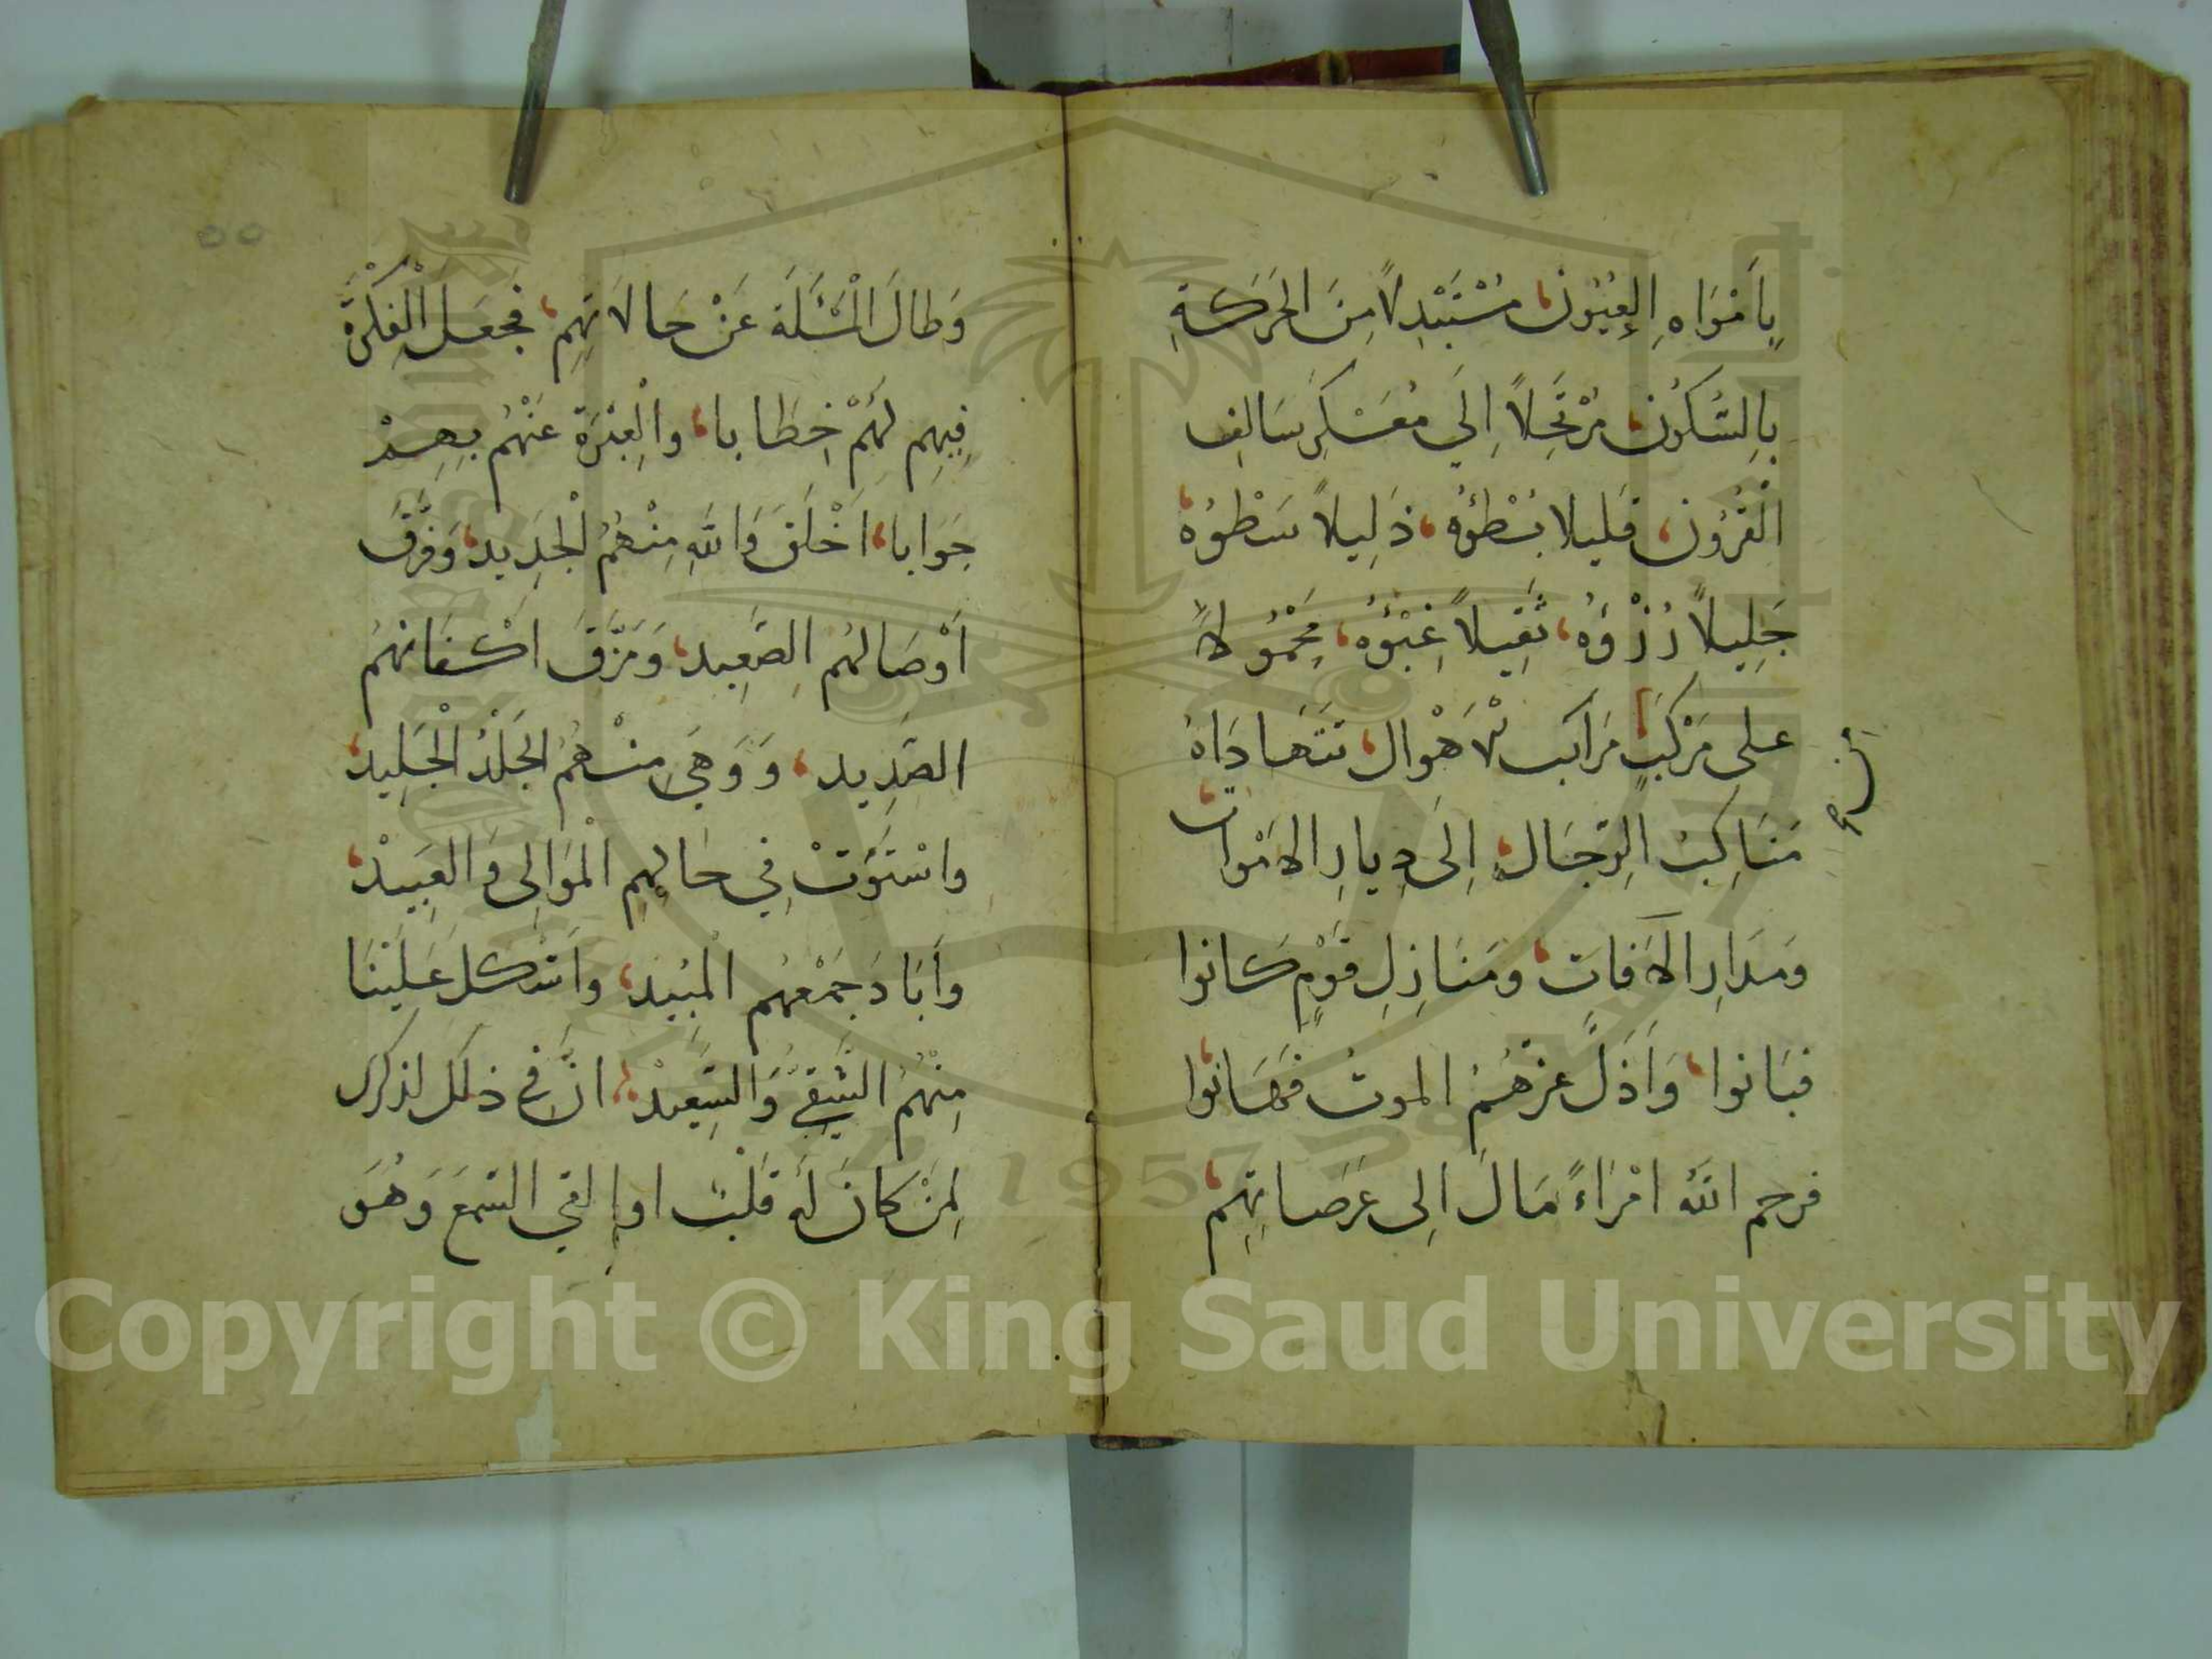 بِاَمْوَاهِ الِعُيُون، مُسْتَبْدِلاً مِنَ الحَرَكَةِ
بِالِسُّكُون، مُرْتَحِلاً اِلَي مُعَسْكَرِ سَالِفِ
الْقُرُون، قليلا بُطْؤُه، ذَلِيلاً سَطْوُهُ،
جَلِيلاً رُزْؤُه، ثَقِيلاً عِبْؤُه، مَحْمُولاً
على مَرْكَبٍ مَرَاكب لاَهْوال، تَتَهادَاهُ
مَنَاكِبُ الِرّجَال، اِلَى دِيارِ الاَمْوات،
وَمَدَارِ الآفاتِ، ومَنَازِلِ قَوْمٍ كانوا
فبَانوا، وَاَذَلَّ عِزَّهُمُ الموتُ فَهَانوا،
فرحم اللّه امْرَاءً مَالَ اِلى عَرَصاتِهِم،
٥٥
وَطالَ الْمَسْئَلَة عَنْ حَالاتِهِم، فجَعَلَ الْفِكْرَةَ
فِيهِم لَهُمْ خِطَابا، والِعِبْرَة عَنْهُم بِهِمْ
جَوَابا، اَخْلَقَ وَاللّهِ مِنْهُمُ لْجَدِيد، وَفَرَّقَ
اَوْصَالهُم الِصَّعِيد، وَمَزَّقَ اكْفَانهُم
الصَّدِيد، وَوَهِيَ مِنْهُمُ الجَلَدُ الْجَلِيد،
واسْتَوَتْ فِي حَالِهِم الْمَوَالِى وَالعَبِيدْ،
وَاَبَادَ جَمْعهُم الْمُبِيْد، وَاَشْكل عَلَيْنَا
مِنْهُم الشَّقِيُّ وَالسَّعِيْد، انّ في ذلك لذكرى
لِمَنْ كَانَ لَه قَلْبٌ او القى السَّمعَ وَهُوَ
Copyright © King Saud University
1957